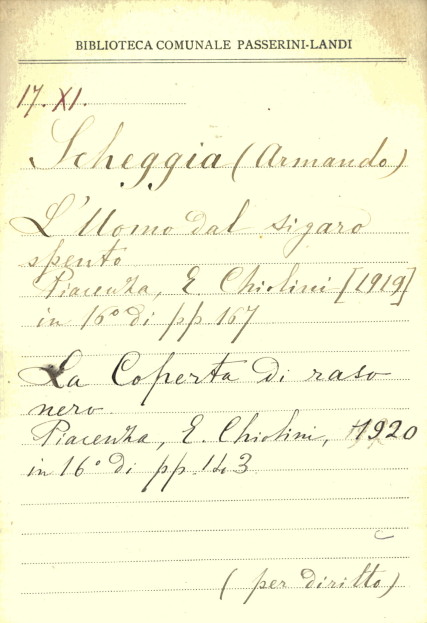 BIBLIOTECA COMUNALE PASSERINI-LANDI
17. XI.
Scheggia (Armando)
L'Uomo dal sigaro
spento
Piacenza, E. Chiolini [1919]
in 16° di pp 167
La Coperta di raso
nero
Piacenza, E. Chiolini, 1920
in 16° di pp. 143
(per diritto)